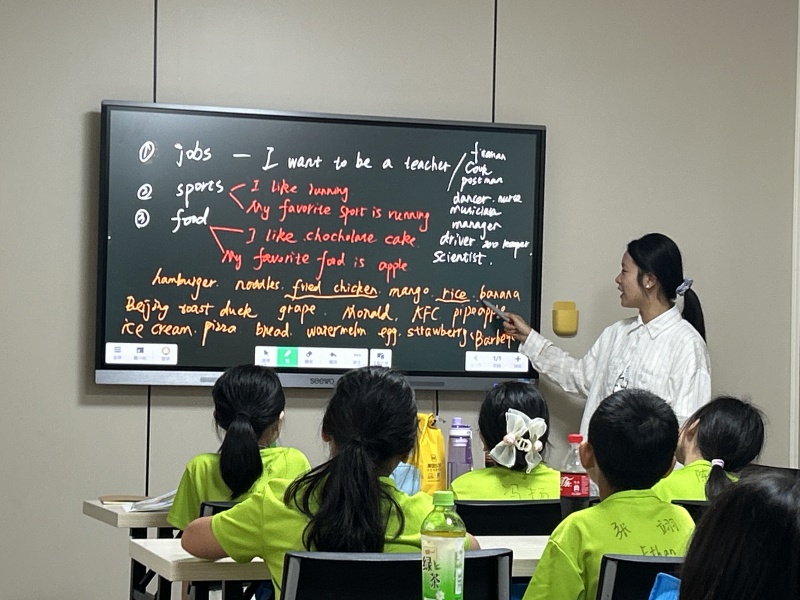 ① jobs — I want to be a teacher
fireman
Cook
postman
② sports
I like running
My favorite sport is running
dancer. nurse
musician
manager
③ food
I like chocholate cake
driver zoo keeper
scientist.
My favorite food is apple
hamburger. noodles. fried chicken. mango. rice. banana
Beijing roast duck grape. Monald. KFC pipeapple
ice cream. pizza bread. watermelm egg. strawberry
1/1
seewo
绿茶
张 翊
Ethan